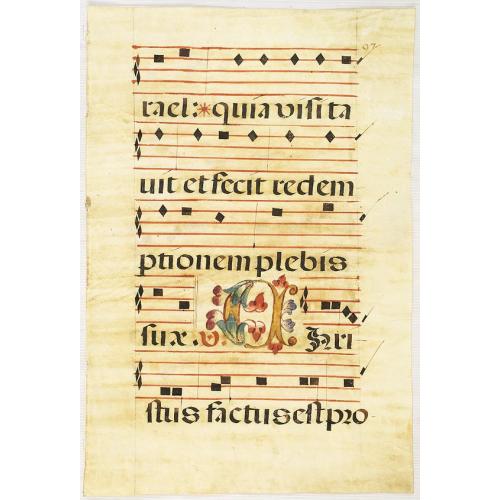 rael: * quia visita
uit et fecit redem
ptionem plebis
suæ. v. C Hri
stus factus est pro